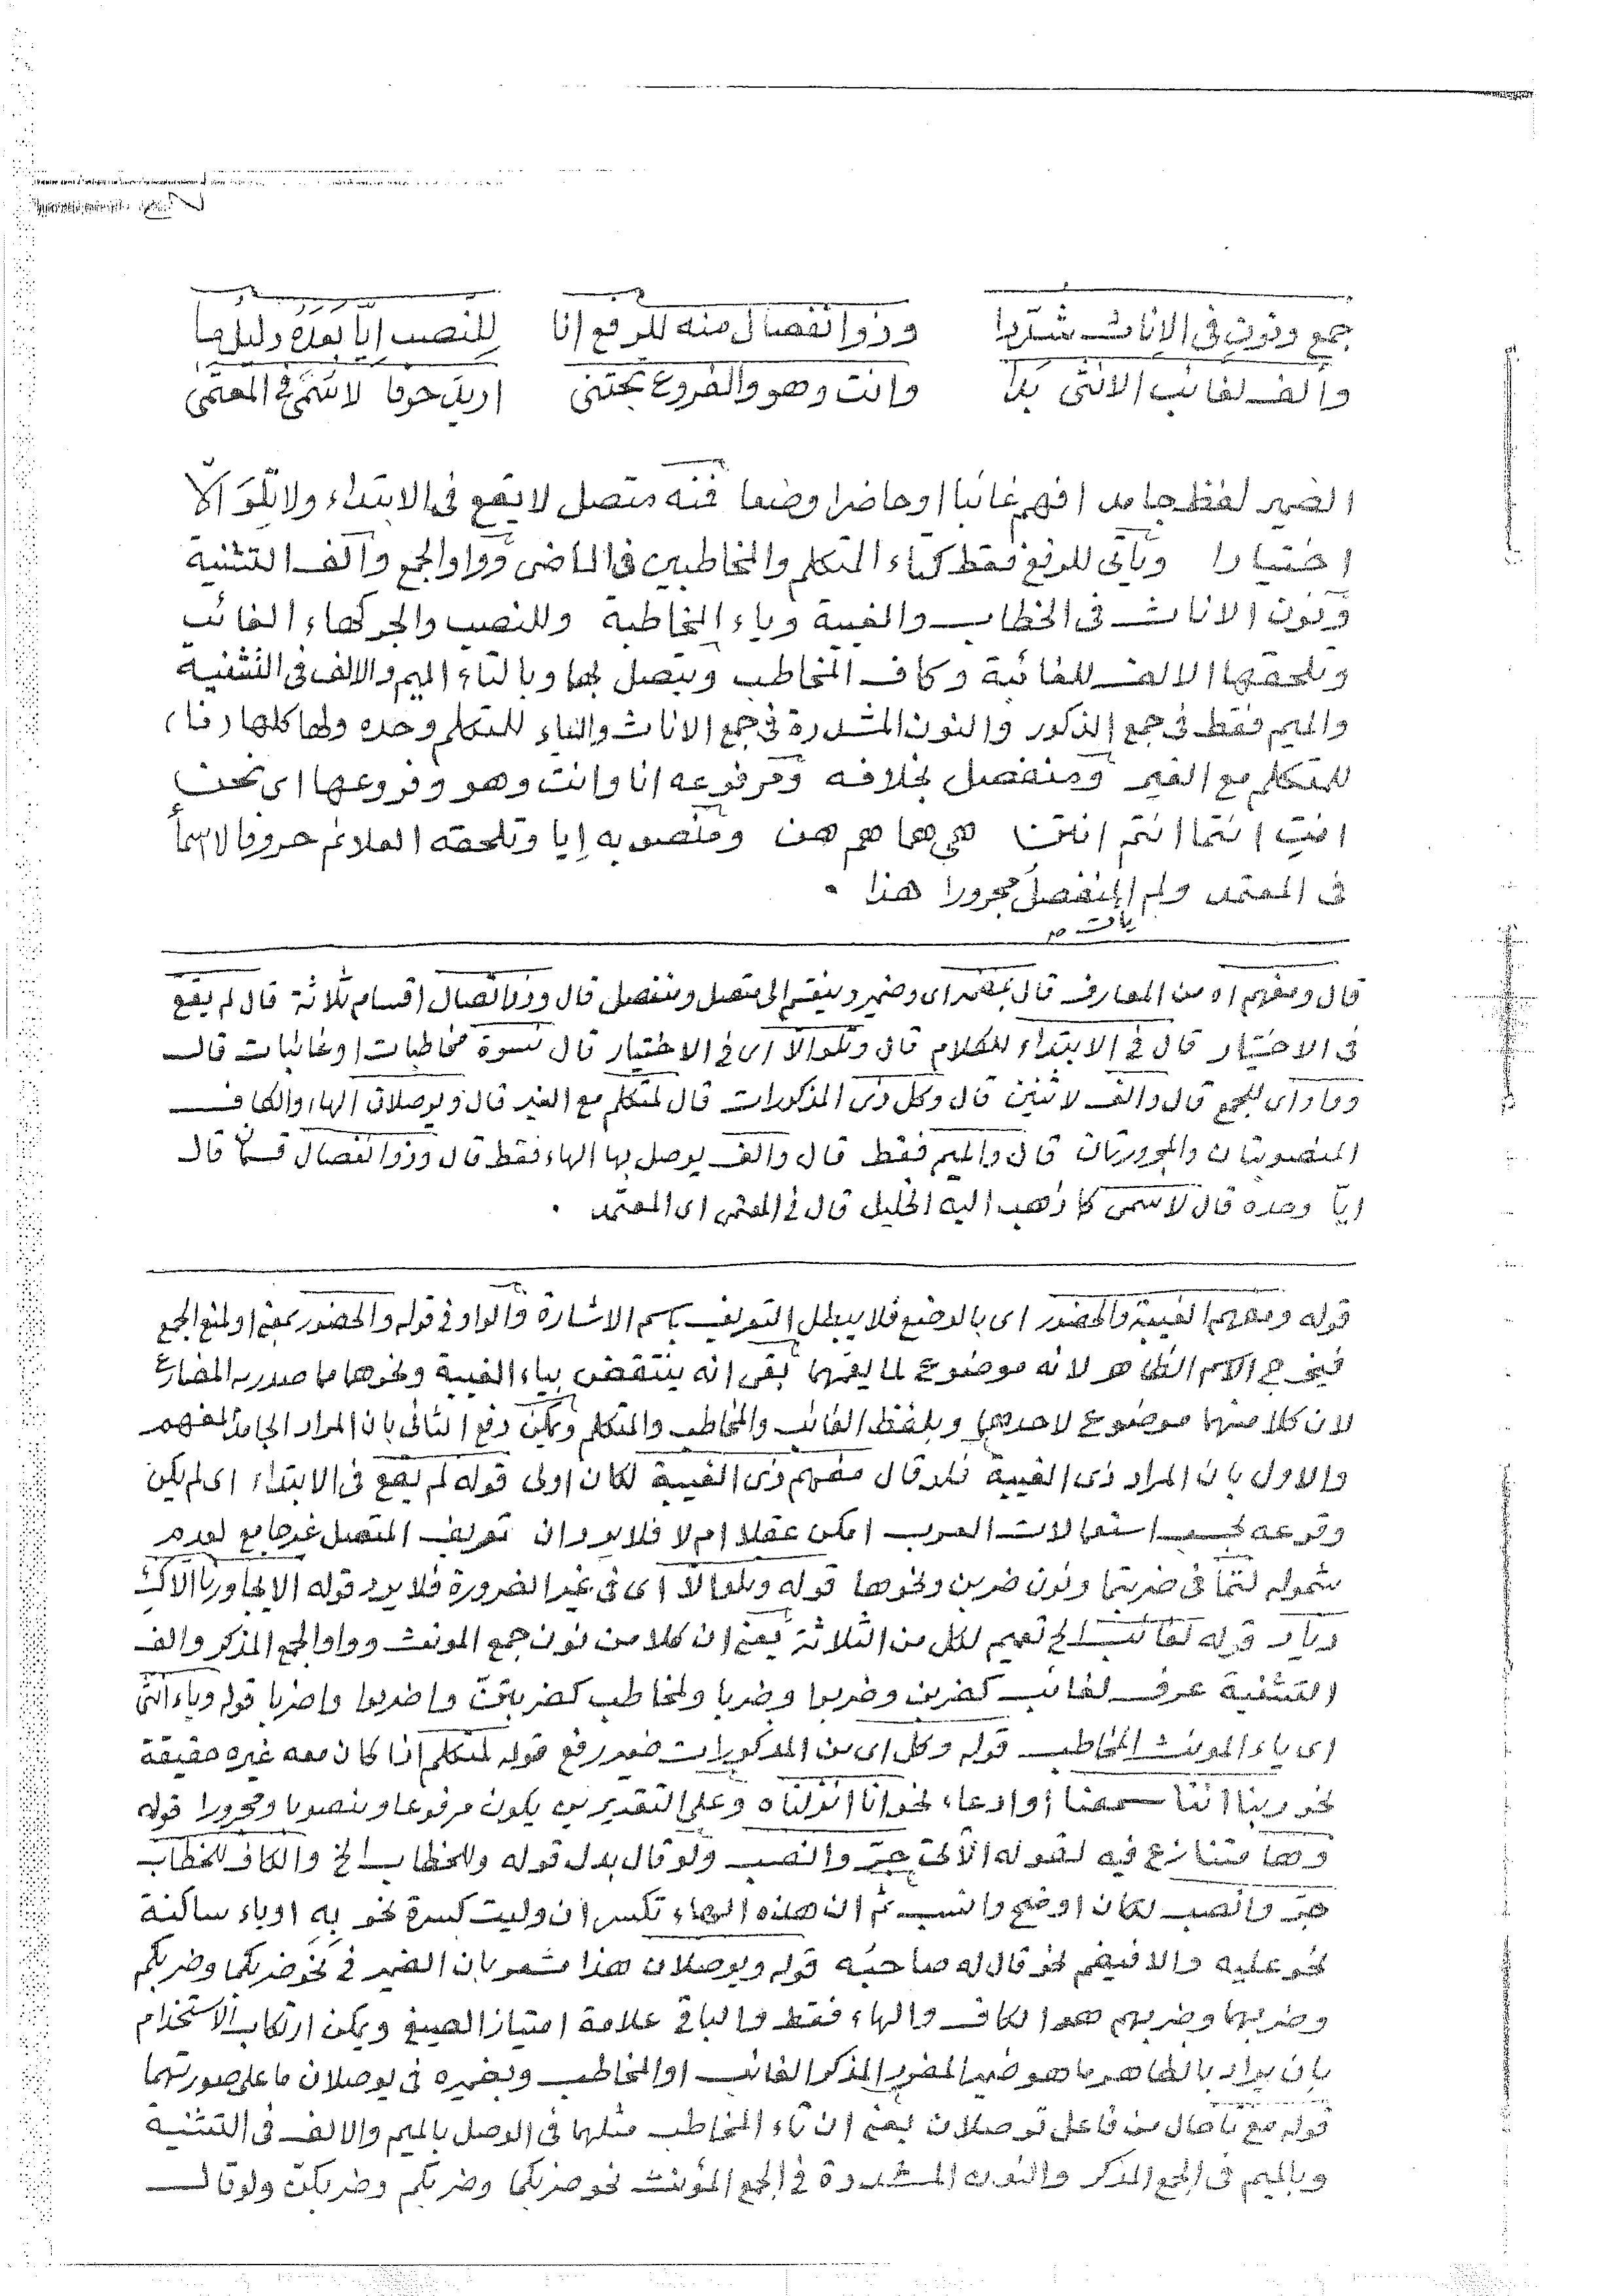 جمع ونون في الاناث شددا وذو انفصال منه للرفع انا للنصب ايا بعده دليلها
والف لغائب الانثى بدا وانت وهو والفروع تجتنى اريد حرفا لا سمى في المعتمى
الضمير لفظ جامد افهم غائبا او حاضرا وضعا فمنه متصل لا يقع في الابتداء ولا يلو الّا
اختيارا ويأتى للرفع فقط كتاء المتكلم والمخاطبين في الماضى وواو الجمع والف التثنية
ونون الاناث في الخطاب والغيبة وياء المخاطبة وللنصب والجر كهاء الغائب
وتلحقها الالف للغائبة وكاف المخاطب ويتصل بهما وبالتاء الميم والالف في التثنية
والميم فقط في جمع الذكور والنون المشددة في جمع الاناث والياء للمتكلم وحده ولها كلها (نا)
للمتكلم مع الغير ومنفصل بخلافه ومرفوعه انا وانت وهو وفروعها اى نحن
انتِ انتما انتم انتن هي هما هم هن ومنصوبه إيا وتلحقه العلائم حروفا لا اسمأ
في المعتمد ولم المنفصل مجرورا هذا ٠
يأت صح
قال ومفهم اه من المعارف قال مضمر اى وضمير وينقسم الى متصل ومنفصل قال وذو اتصال اقسام ثلاثة قال لم يقع
في الاختيار قال في الابتداء للكلام قال وتلو الّا اى في الاختيار قال نسوة مخاطبات او غائبات قال
وواو اى للجمع قال والف لاثنين قال وكل ذى المذكورات قال لمتكلم مع الغير قال ويوصلان الهاء والكاف
المنصوبتان والمجرورتان قال والميم فقط قال والف يوصل بها الهاء فقط قال وذو انفصال قسمان قال
ايّا وحده قال لا سمى كما ذهب اليه الخليل قال في المعتمى اى المعتمد ٠
قوله ومفهم الغيبة والحضور اى بالوضع فلا يبطل التعريف باسم الاشارة والواو في قوله والحضور بمعنى او لمنع الجمع
فيخرج الاسم الظاهر لانه موضوع لما يعمهما بقى انه ينتقض بياء الغيبة ونحوها مما صدر به المضارع
لان كلا منها موضوع لاحدهما وبلفظ الغائب والمخاطب والمتكلم ويمكن دفع الثانى بان المراد الجامد المفهم
والاول بان المراد ذى الغيبة فلو قال مفهم ذى الغيبة لكان اولى قوله لم يقع في الابتداء اى لم يكن
وقوعه بحسب استعمالات العرب امكن عقلا ام لا فلا يرد ان تعريف المتصل غير جامع لعدم
شموله لتما في ضربتما ونون ضربن ونحوها قوله وتلو الّا اى في غير الضرورة فلا يرد قوله الا يجاورنا الّاك
ديار قوله لغائب الخ تعميم لكل من الثلاثة يعنى ان كلا من نون جمع المونث وواو الجمع المذكر والف
التثنية عرف لغائب كضربن وضربوا وضربا ولمخاطب كضربتن واضربوا واضربا قوله وياء انثى
اى ياء المونث المخاطب قوله وكل اى من المذكورات ضمير رفع قوله لمتكلم اذا كان معه غيره حقيقة
نحو ربنا اننا سمعنا او ادعاء نحو انا انزلناه وعلى التقديرين يكون مرفوعا ومنصوبا ومجرورا قوله
وها متنازع فيه لقوله الآتى جرّ وانصب ولو قال بدل قوله وللخطاب الخ والكاف للخطاب
جرّ وانصب لكان اوضح وانسب ثم ان هذه الهاء تكسر ان وليت كسرة نحو بِهِ او ياء ساكنة
نحو عليه والا فيضم نحو قال له صاحبُه قوله ويوصلان هذا مشعر بان الضمير في نحو ضربكما وضربكم
وضربهما وضربهم هو الكاف والهاء فقط والباقى علامة امتياز الصيغ ويمكن ارتكاب الاستخدام
بان يراد بالظاهر ما هو ضمير المفرد المذكر الغائب او المخاطب وبضميره في يوصلان ما على صورتهما
قوله مع تا حال من فاعل توصلان يعنى ان تاء المخاطب مثلهما في الوصل بالميم والالف في التثنية
وبالميم في الجمع المذكر والنون المشددة في الجمع المؤنث نحو ضربكما وضربكم وضربكن ولو قال